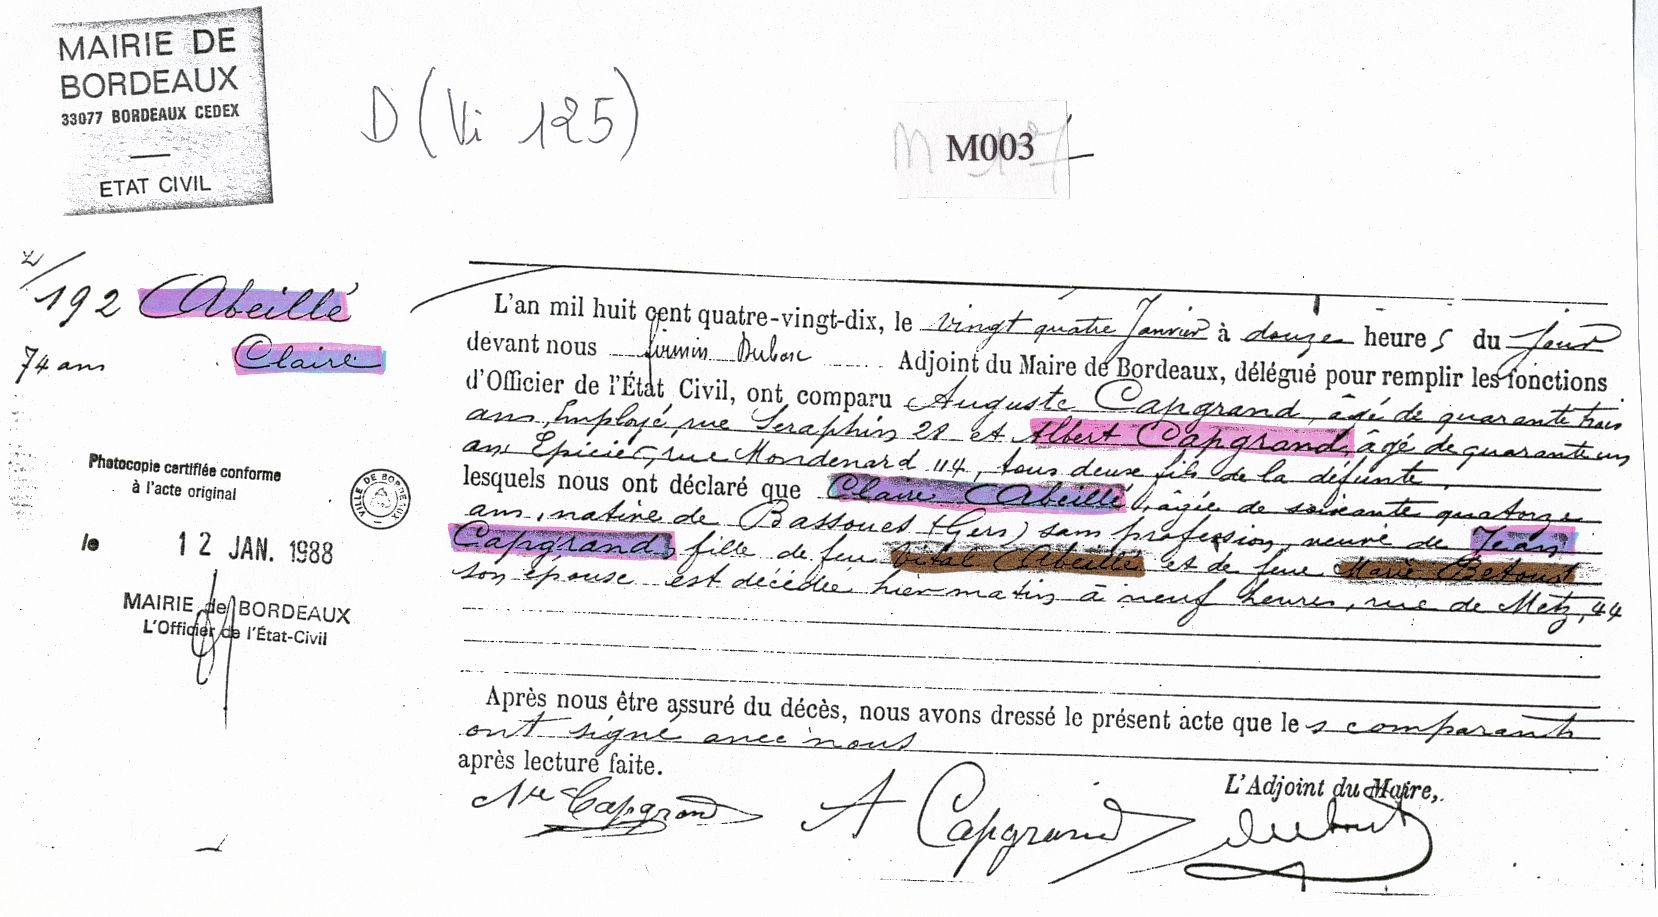 MAIRIE DE
BORDEAUX
33077 BORDEAUX CEDEX
ETAT CIVIL
D (Vi 125)
M003
192 Abeillé
Claire
74 ans
Photocopie certifiée conforme
à l'acte original
VILLE DE BORDEAUX
le 12 JAN. 1988
MAIRIE de BORDEAUX
L'Officier de l'État-Civil
L'an mil huit cent quatre-vingt-dix, le vingt quatre Janvier à douze heures du jour
devant nous Firmin Dubosc Adjoint du Maire de Bordeaux, délégué pour remplir les fonctions
d'Officier de l'État Civil, ont comparu Auguste Capgrand, âgé de quarante trois
ans, Employé, rue Seraphin 28 et Albert Capgrand, âgé de quarante un
an Epicier, rue Mondenard 114, tous deux fils de la défunte,
lesquels nous ont déclaré que Claire Abeillé, âgée de soixante quatorze
ans, native de Bassoues (Gers) sans profession, veuve de Jean
Capgrand, fille de feu Vital Abeillé et de feue Marie Betous
son épouse est décédée hier matin à neuf heures, rue de Metz, 44
Après nous être assuré du décès, nous avons dressé le présent acte que les comparants
ont signé avec nous
après lecture faite.
L'Adjoint du Maire,
Capgrand
A Capgrand